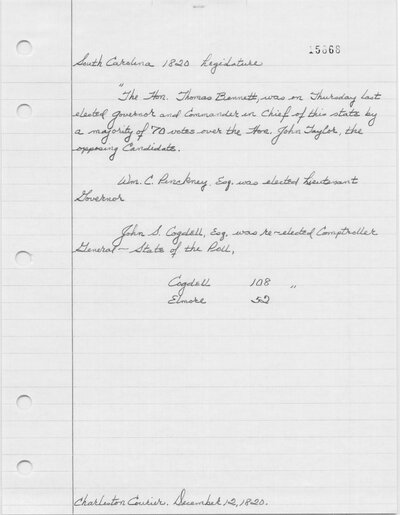 15868
South Carolina 1820 Legislature
"The Hon. Thomas Bennett, was on Thursday last
elected Governor and Commander in Chief of this state by
a majority of 70 votes over the Hon. John Taylor, the
opposing Candidate.
Wm. C. Pinckney, Esq. was elected Lieutenant
Governor
John S. Cogdell, Esq. was re-elected Comptroller
General - State of the Poll,
Cogdell 108 "
Elmore 52
Charleston Courier. December 12, 1820.